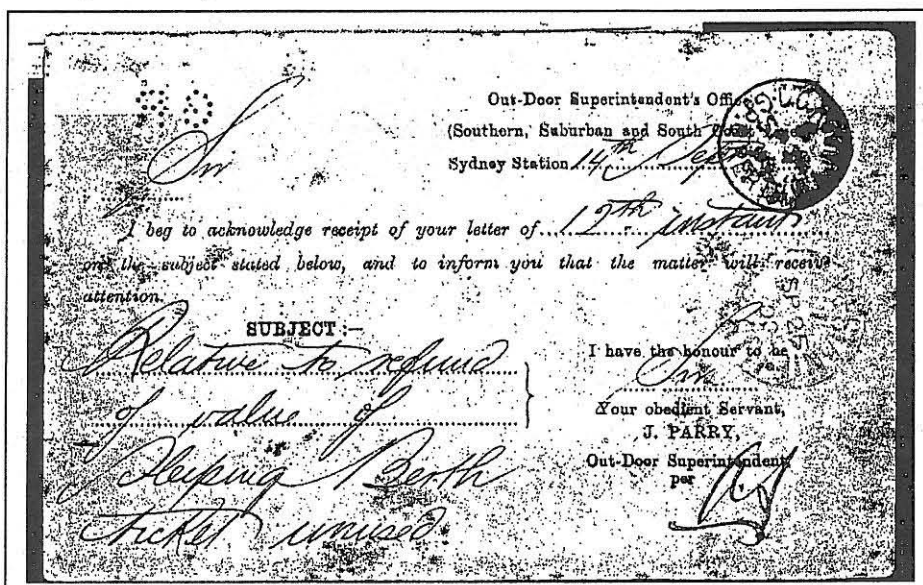 Sir
Out-Door Superintendent's Office
(Southern, Suburban and South
Sydney Station 14th Sept
I beg to acknowledge receipt of your letter of 12th instant
on the subject stated below, and to inform you that the matter will receive
attention.
SUBJECT :—
Relative to refund
of value of
Sleeping Berth
ticket unused.
I have the honour to be
Sir
Your obedient Servant,
J. PARRY,
Out-Door Superintendent,
per